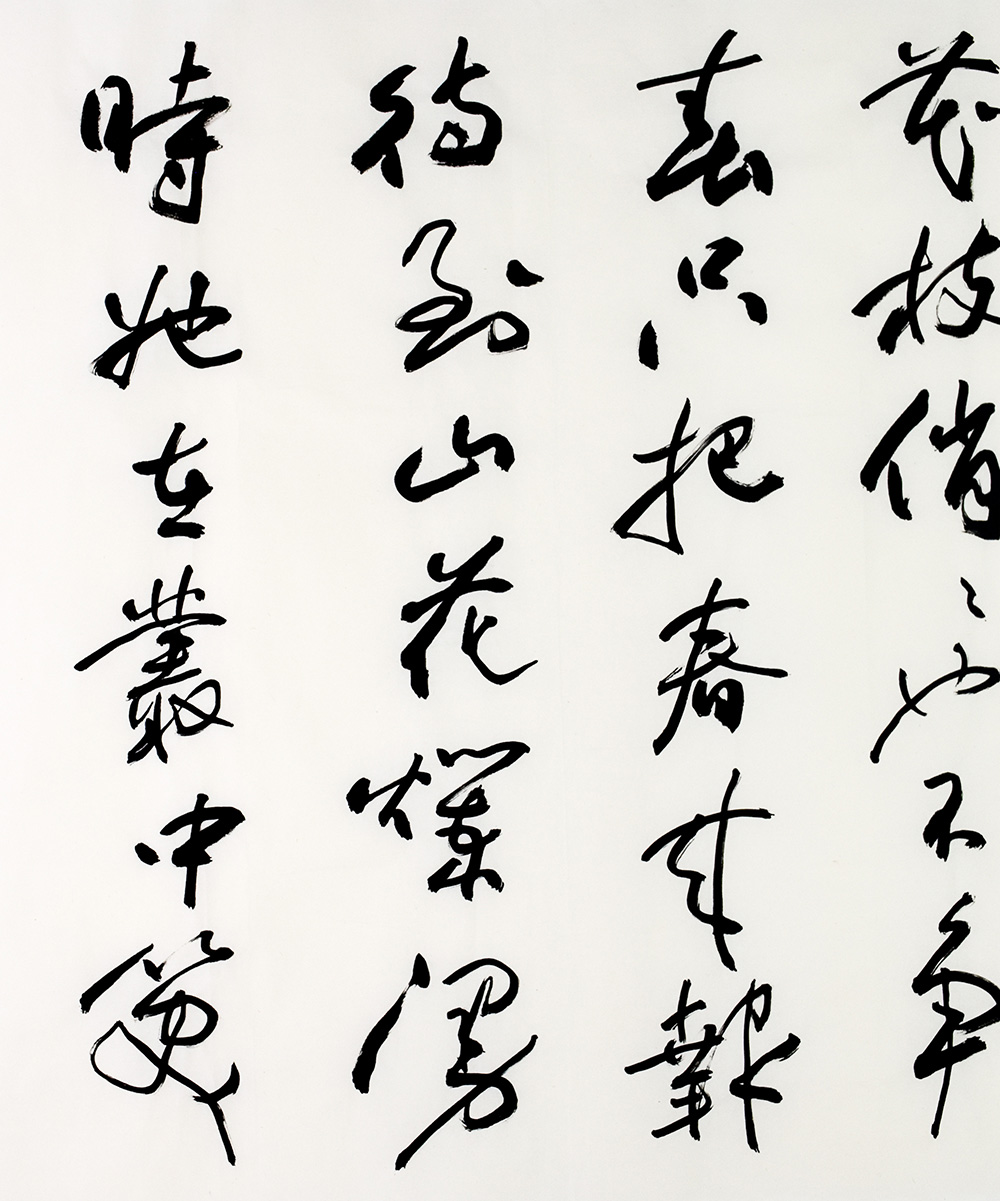 花枝俏〻也不争
春只把春来報
待到山花爛漫
時她在叢中笑